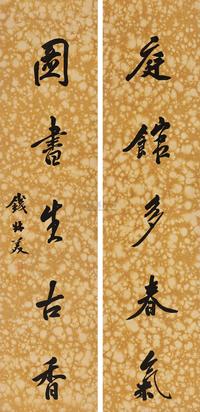 庭館多春氣
圖書生古香
錢振美